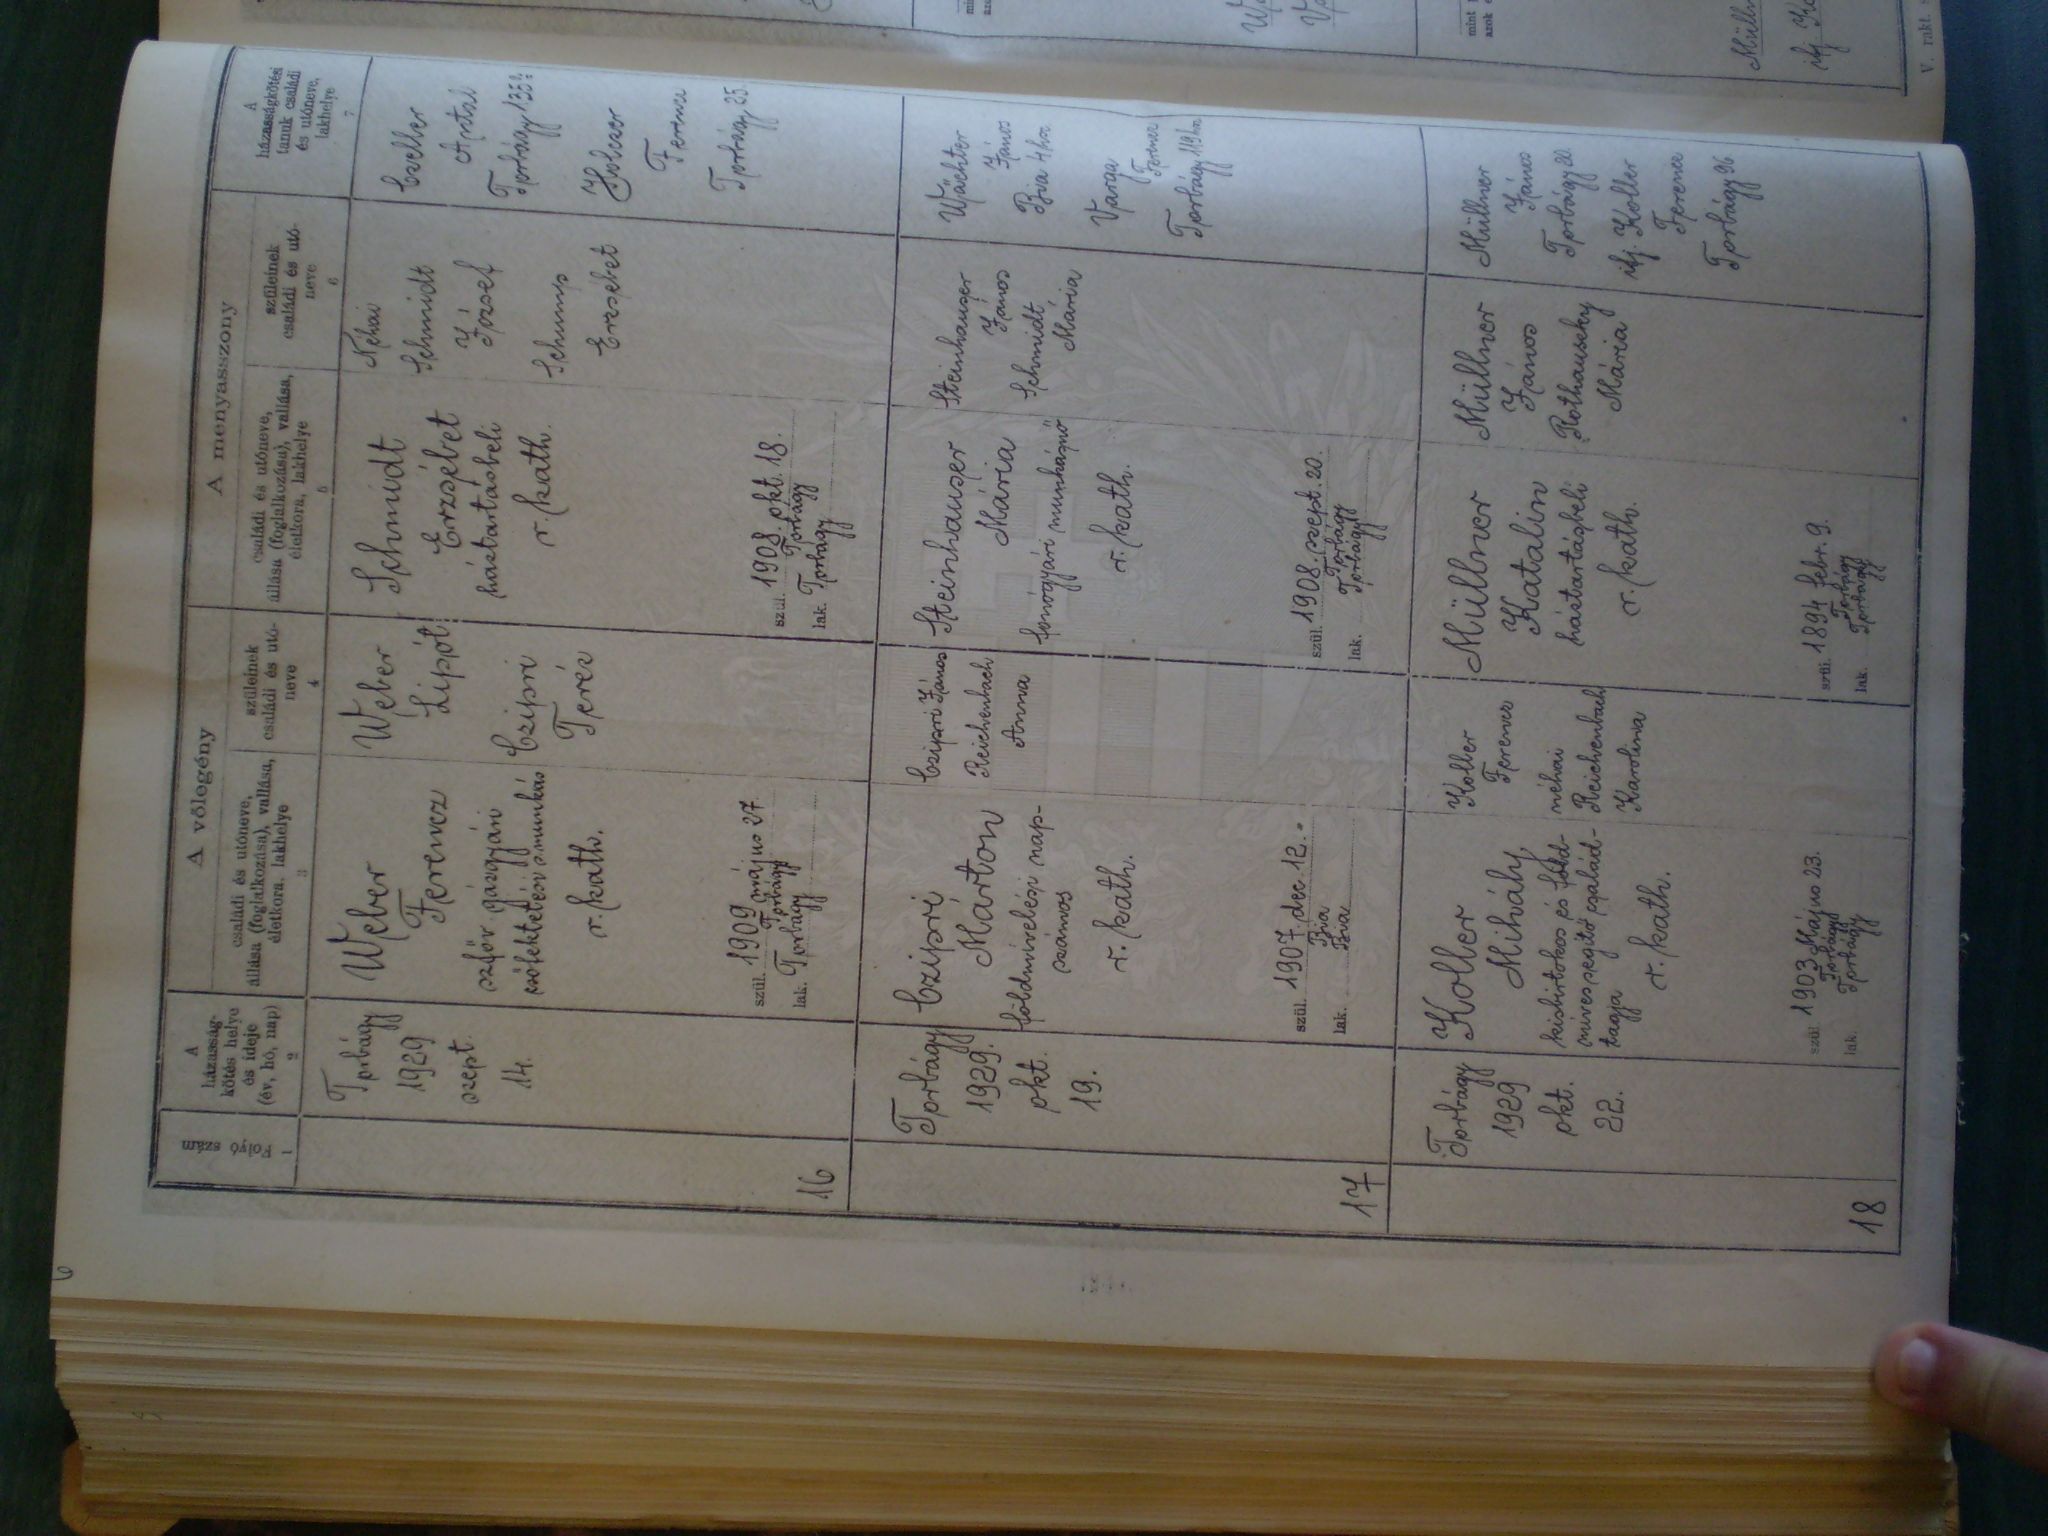 6
A vőlegény
A menyasszony
Folyó szám
1
A
házasság-
kötés helye
és ideje
(év, hó, nap)
2
családi és utóneve,
állása (foglalkozása), vallása,
életkora, lakhelye
3
szüleinek
családi és utó-
neve
4
családi és utóneve,
állása (foglalkozása), vallása,
életkora, lakhelye
5
szüleinek
családi és utó-
neve
6
A
házasságkötési
tanuk családi
és utóneve,
lakhelye
7
16
Torbágy
1929
szept.
14.
Weber
Ferencz
szföv gázgyári
csőfektetési munkás
r. kath.
szül. 1909 május 27.
Torbágy
lak. Torbágy
Weber
Lipót
Czipri
Teréz
Schmidt
Erzsébet
háztartásbeli
r. kath.
szül. 1908 okt. 18.
Torbágy
lak. Torbágy
Néhai
Schmidt
József
Schump
Erzsébet
Czeber
Antal
Torbágy
Holczer
Ferencz
Torbágy 25.
17
Torbágy
1929.
okt.
19.
Czipri
Márton
földmívelési nap-
számos
r. kath.
szül. 1907. dec. 12.
Bia
lak. Bia
Czipri János
Reichenbach
Anna
Steinhauser
Mária
fonógyári munkásnő
r. kath.
szül. 1908. szept. 20.
Torbágy
lak. Torbágy
Steinhauser
János
Schmidt
Mária
Wächter
János
Bia 4 hsz.
Varga
Ferencz
Torbágy 119 hsz.
18
Torbágy
1929
okt.
22.
Koller
Mihály,
kisbirtokos és föld-
míves segítő család-
tagja
r. kath.
szül. 1903 Május 23.
Torbágy
lak. Torbágy
Koller
Ferencz
néhai
Reichenbach
Karolina
Müllner
Katalin
háztartásbeli
r. kath.
szül. 1894 febr. 9.
Torbágy
lak. Torbágy
Müllner
János
Rothauszky
Mária
Müllner
János
Torbágy 20.
ifj. Koller
Ferencz
Torbágy 96
V. rakt.